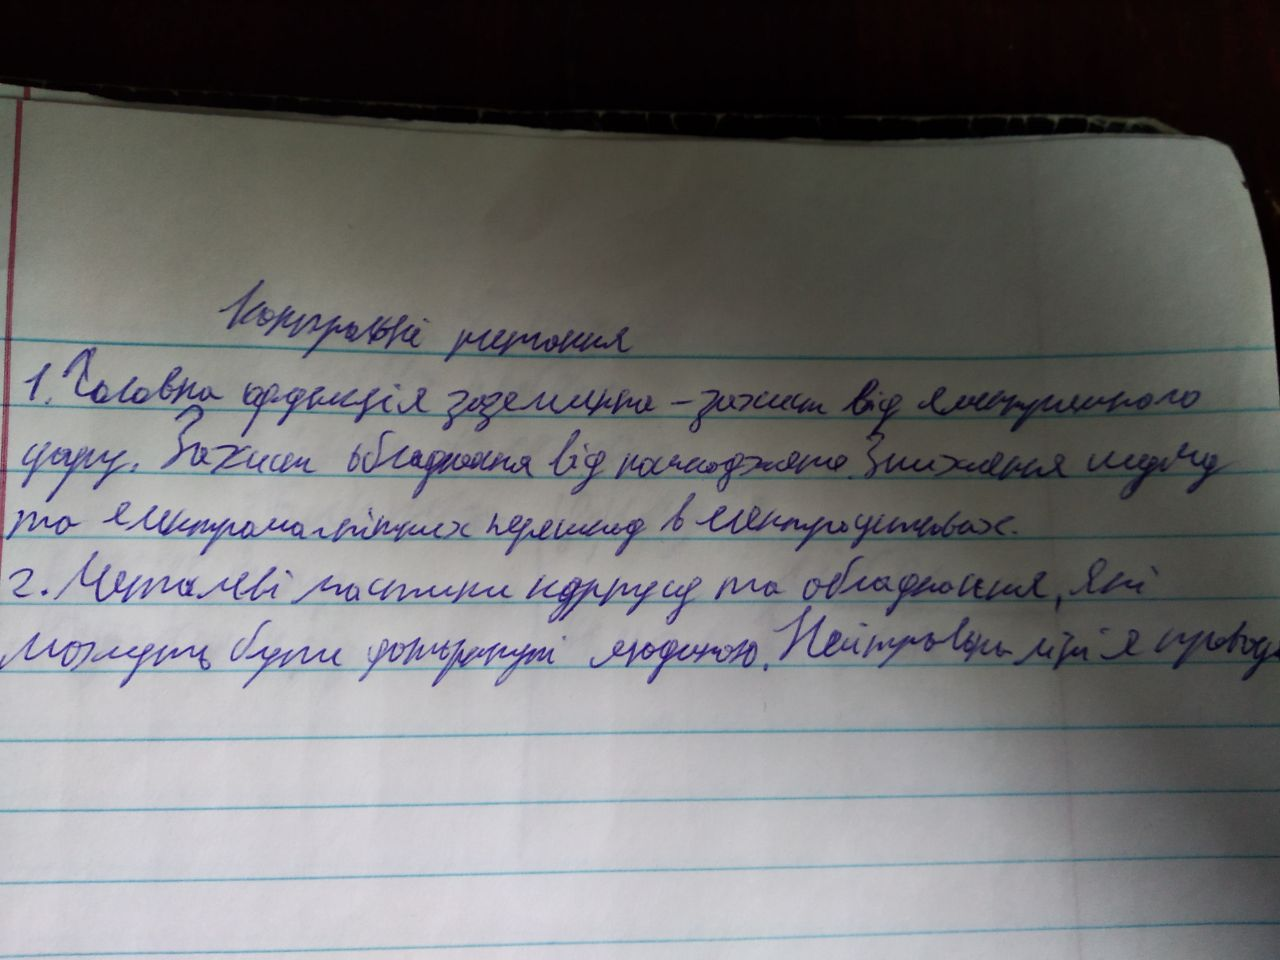 Контрольні питання
1. Головна функція заземлення – захист від електричного
удару. Захист обладнання від пошкоджень. Зниження шуму
та електромагнітних перешкод в електроустановках.
2. Металеві частини корпусу та обладнання, які
можуть бути доторкнуті людиною. Нейтральні лінія провод